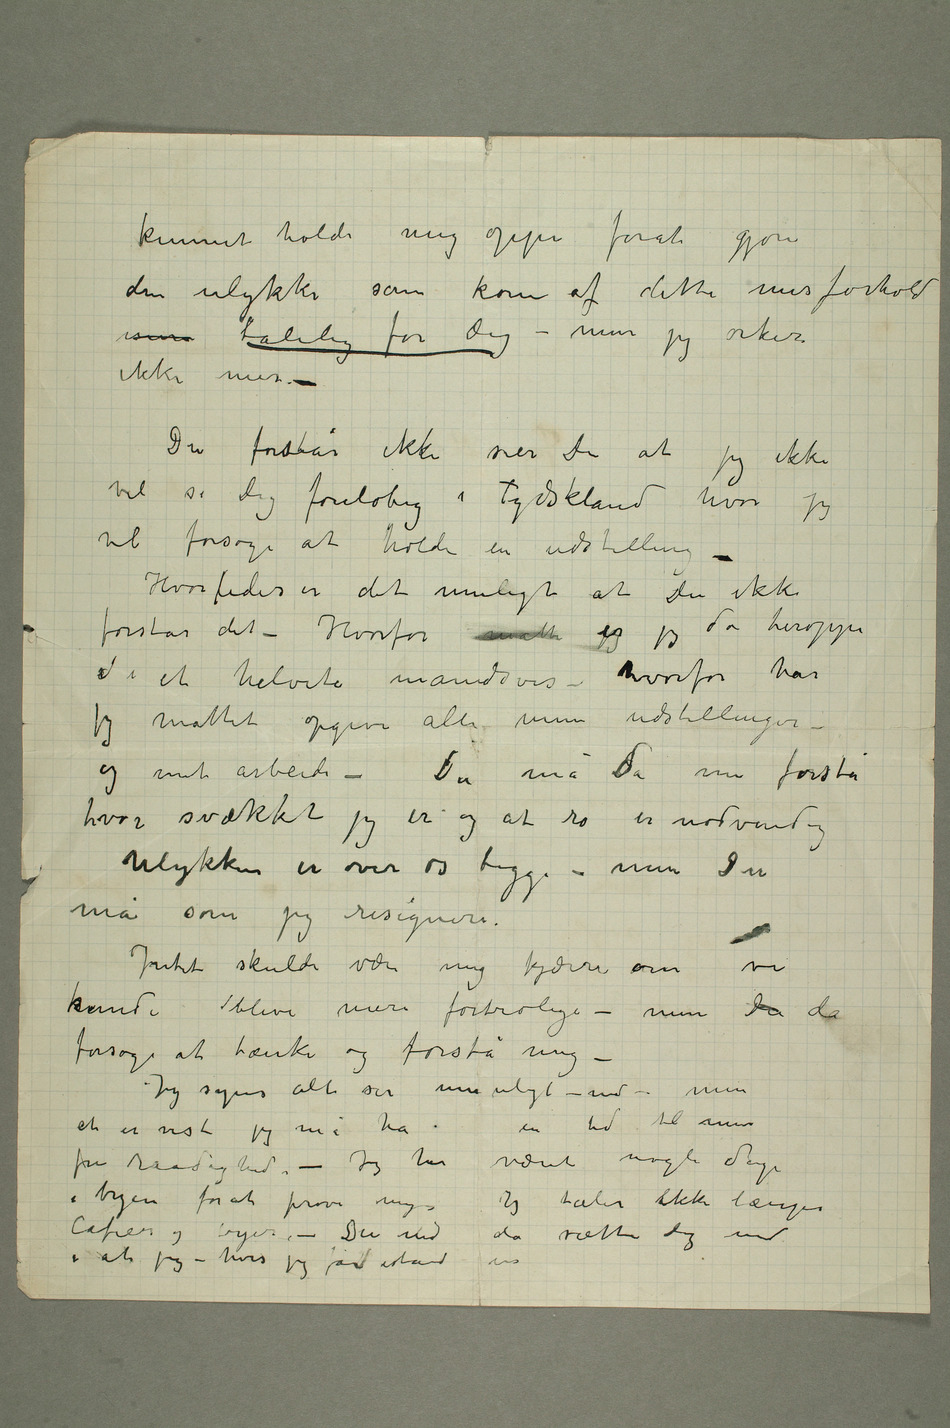 kunnet holde mig oppe forat gjøre
den ulykke som kom af dette misforhold
talelig for Dig – men jeg orker
ikke mer. –
Du forstår ikke sier Du at jeg ikke
vil se Dig foreløbig i Tydskland hvor jeg
vil forsøge at holde en udstilling –
Hvorledes er det muligt at Du ikke
forstår det – Hvorfor måtte jeg da heroppe
i et helvite månedsvis – hvorfor har
jeg måttet opgive alle mine udstillinger –
og mit arbeide – Du må da nu forstå
hvor svækket jeg er og at ro er nødvendig
Ulykken er over os begge – men Du
må som jeg resignere.
Intet skulde være mig kjærere om vi
kunde blive mere fortrolige – men Du da
forsøge at tænke og forstå mig –
Jeg synes alt ser umuligt ud – men
et er vist jeg må ha en tid til min
fri Raadighed. – Jeg har været nogle dage
i byen forat prøve mig. Jeg taaler ikke længer
Cafeer og byer. – Du må da sætte Dig ind
i at jeg – hvis jeg